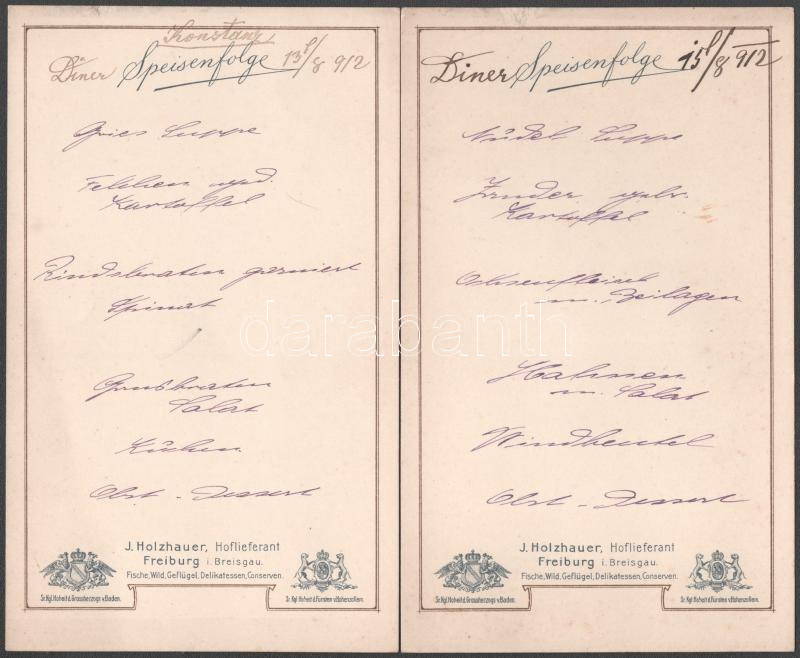 Konstanz
Diner Speisenfolge 13/8 912
Gries Suppe
Felchen ged.
Kartoffel
Rindsbraten garniert
Spinat
Gansbraten
Salat
Kuchen
Obst - Dessert
J. Holzhauer, Hoflieferant
Freiburg i. Breisgau.
Fische, Wild, Geflügel, Delikatessen, Conserven.
Sr. Kgl. Hoheit d. Grossherzogs v. Baden.
Sr. Kgl. Hoheit d. Fürsten v. Hohenzollern.
Diner Speisenfolge 15/8 912
Nudel Suppe
Zander geb.
Kartoffel
Ochsenfleisch
m. Beilagen
Hahnen
m. Salat
Windbeutel
Obst - Dessert
J. Holzhauer, Hoflieferant
Freiburg i. Breisgau.
Fische, Wild, Geflügel, Delikatessen, Conserven.
Sr. Kgl. Hoheit d. Grossherzogs v. Baden.
Sr. Kgl. Hoheit d. Fürsten v. Hohenzollern.
darabanth